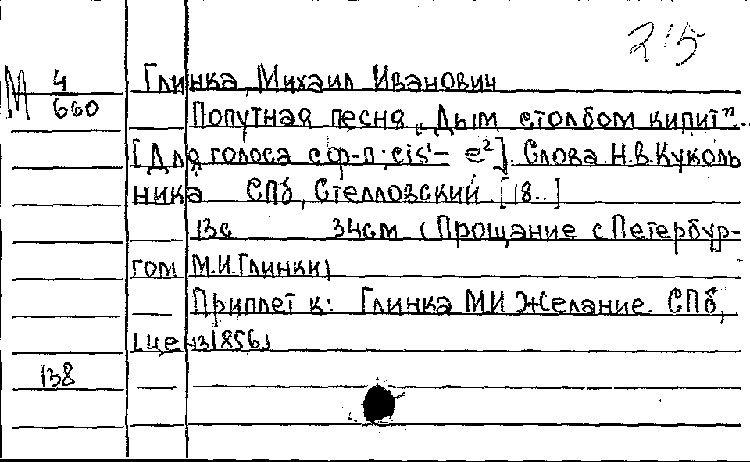 215
М 4/660 Глинка, Михаил Иванович
Попутная песня „Дым столбом кипит"...
[Для голоса с ф-п.; cis¹ – e²]. Слова Н.В. Куколь
ника СПб, Стелловский [18..]
13с 34см (Прощание с Петербур-
гом М.И. Глинки)
Приплет к: Глинка МИ Желание. СПб,
[ценз 1856]
138